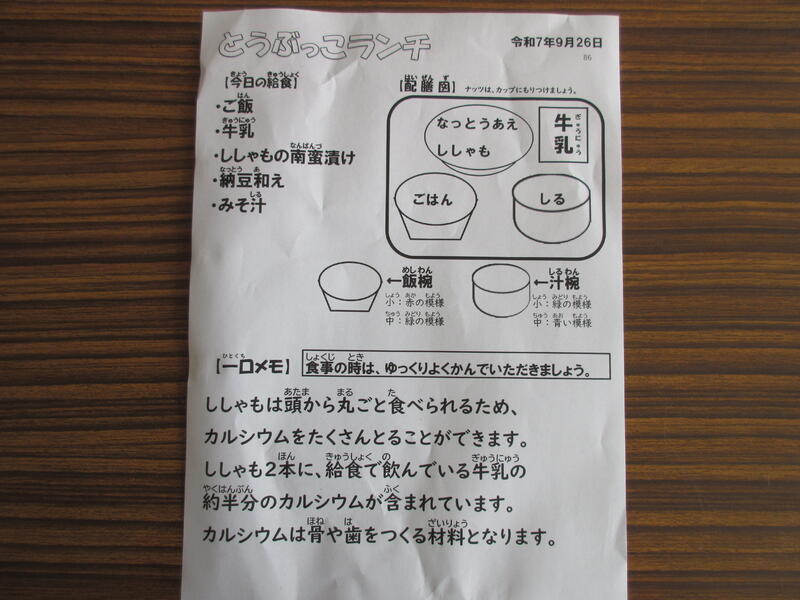 とうぶっこランチ
令和7年9月26日
86
【今日の給食】
・ご飯
・牛乳
・ししゃもの南蛮漬け
・納豆和え
・みそ汁
【配膳図】 ナッツは、カップにもりつけましょう。
なっとうあえ
ししゃも
牛乳
ごはん
しる
←飯椀
小：赤の模様
中：緑の模様
←汁椀
小：緑の模様
中：青い模様
【一口メモ】 食事の時は、ゆっくりよくかんでいただきましょう。
ししゃもは頭から丸ごと食べられるため、
カルシウムをたくさんとることができます。
ししゃも2本に、給食で飲んでいる牛乳の
約半分のカルシウムが含まれています。
カルシウムは骨や歯をつくる材料となります。